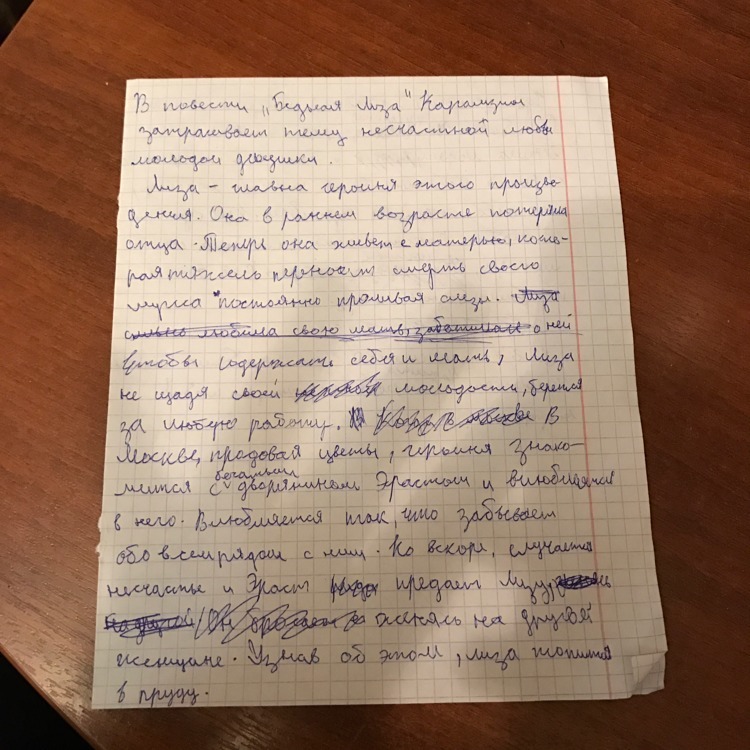 В повести „Бедная Лиза" Карамзин
затрагивает тему несчастной любви
молодой девушки.
Лиза – главна героиня этого произве-
дения. Она в раннем возрасте потеряла
отца. Теперь она живет с матерью, кото-
рая тяжело переносит смерть своего
мужа постоянно проливая слезы. Лиза
сильно любила свою мать, заботилась о ней
Чтобы содержать себя и мать, Лиза
не щадя своей молодости, берется
за любую работу. В
Москве, продовая цветы, героиня знако-
мится с богатым дворянином Эрастом и влюбляется
в него. Влюбляется так, что забывает
обо всем рядом с ним. Но вскоре, случается
несчастье и Эраст предает Лизу,
женясь на другой
женщине. Узнав об этом, лиза топится
в пруду.